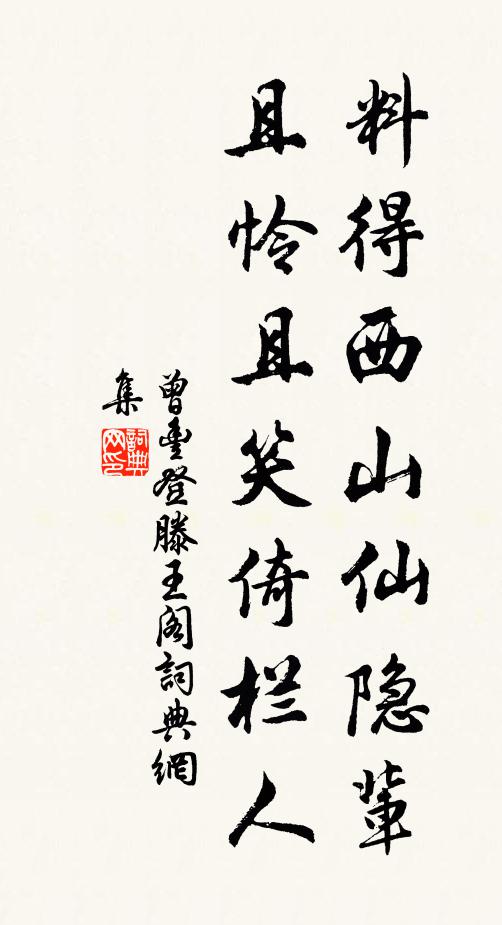 料得西山仙隐輩
且怜且笑倚栏人
曾豐登滕王阁詞典網
集
詞典
网印